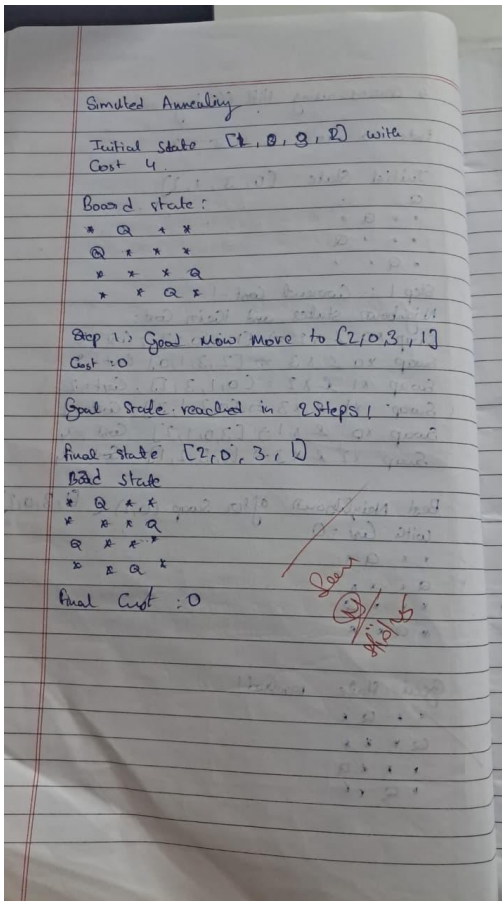 Simulted Annealing
Initial State [1, 0, 3, 2] with
Cost 4.
Board state:
* Q * *
Q * * *
* * * Q
* * Q *
Step 1: Good Mow Move to [2,0,3,1]
Cost :0
Goal state reached in 2 Steps!
Final state [2,0,3,1]
Board State
* Q * *
* * * Q
Q * * *
* * Q *
Final Cost :0
Seen